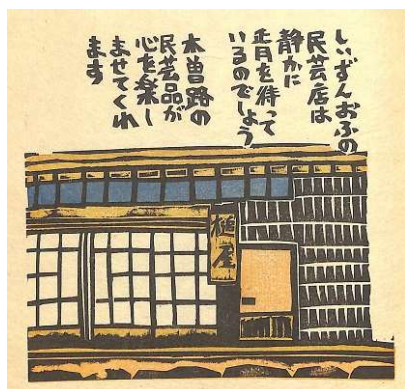 しいずんおふの
民芸店は
静かに
春を待って
いるのでしょう
木曽路の
民芸品が
心を楽し
ませてくれ
ます